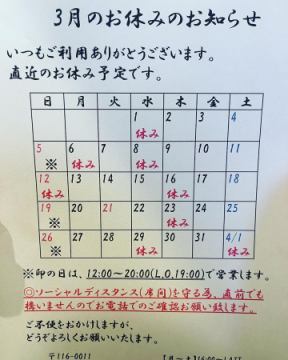 3月のお休みのお知らせ
いつもご利用ありがとうございます。
直近のお休み予定です。
日 月 火 水 木 金 土
1 2 3 4
休み
5 6 7 8 9 10 11
※ 休み
12 13 14 15 16 17 18
休み 休み
19 20 21 22 23 24 25
※
26 27 28 29 30 31 4/1
※ 休み 休み
※印の日は、12:00～20:00(L.O,19:00)で営業します。
◎ソーシャルディスタンス(席間)を守る為、直前でも
構いませんのでお電話でのご確認お願い致します。
ご不便をおかけしますが、
どうぞよろしくお願いいたします。
〒116-0011